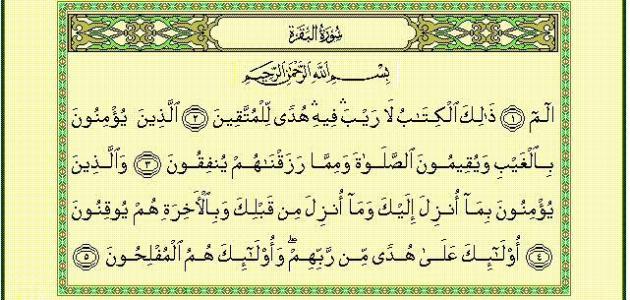 سُورَةُ البَقَرَة
بِسْمِ اللَّهِ الرَّحْمَٰنِ الرَّحِيمِ
الٓمٓ ۝١ ذَٰلِكَ الْكِتَابُ لَا رَيْبَ ۛ فِيهِ ۛ هُدًى لِّلْمُتَّقِينَ ۝٢ الَّذِينَ يُؤْمِنُونَ
بِالْغَيْبِ وَيُقِيمُونَ الصَّلَوٰةَ وَمِمَّا رَزَقْنَاهُمْ يُنفِقُونَ ۝٣ وَالَّذِينَ
يُؤْمِنُونَ بِمَآ أُنزِلَ إِلَيْكَ وَمَآ أُنزِلَ مِن قَبْلِكَ وَبِالْأَخِرَةِ هُمْ يُوقِنُونَ
۝٤ أُوْلَٰٓئِكَ عَلَىٰ هُدًى مِّن رَّبِّهِمْ ۖ وَأُوْلَٰٓئِكَ هُمُ الْمُفْلِحُونَ ۝٥